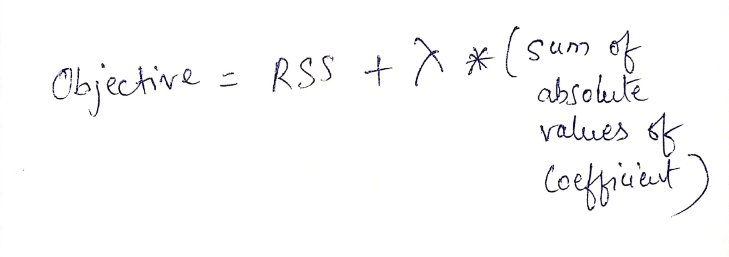 Objective = RSS + λ * (sum of
absolute
values of
coefficient)